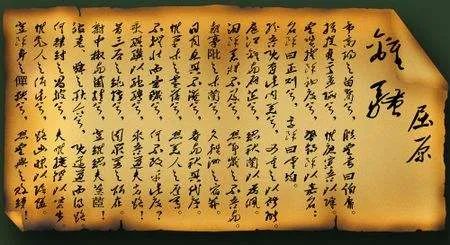 離騷
屈原
帝高陽之苗裔兮,朕皇考曰伯庸。
攝提貞于孟陬兮,惟庚寅吾以降。
皇覽揆余初度兮,肇錫余以嘉名。
名余曰正則兮,字余曰靈均。
紛吾既有此內美兮,又重之以修能。
扈江離與辟芷兮,紉秋蘭以為佩。
汨余若將不及兮,恐年歲之不吾與。
朝搴阰之木蘭兮,夕攬洲之宿莽。
日月忽其不淹兮,春與秋其代序。
惟草木之零落兮,恐美人之遲暮。
不撫壯而棄穢兮,何不改乎此度?
乘騏驥以馳騁兮,來吾道夫先路!
昔三后之純粹兮,固眾芳之所在。
雜申椒與菌桂兮,豈維紉夫蕙茝!
彼堯舜之耿介兮,既遵道而得路。
何桀紂之猖披兮,夫唯捷徑以窘步。
惟黨人之偷樂兮,路幽昧以險隘。
豈余身之憚殃兮,恐皇輿之敗績!